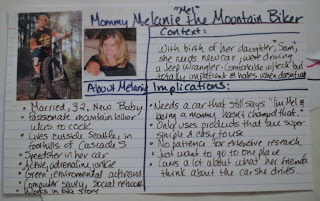 "Mel"
Mommy Melanie the Mountain Biker
Context:
With birth of her daughter, Sam,
she needs new car; was driving
a Jeep Wrangler. Comfortable w/tech but
totally impatient & hates when doesn't work
About Melanie
• Married, 32, New Baby
• Passionate mountain biker
likes to rock!
• Lives outside Seattle, in
foothills of Cascades
• Speedster in her car
• Active, adrenaline junkie
• Green, environmental activism
• Computer savvy, social network
• Works in bike store
Implications:
• Needs a car that still says "I'm Mel &
being a mommy hasn't changed that."
• Only uses products that are super
simple & easy to use
• No patience for extensive research
• Just want to go to one place
• Cares a lot about what her friends
think about the car she drives.